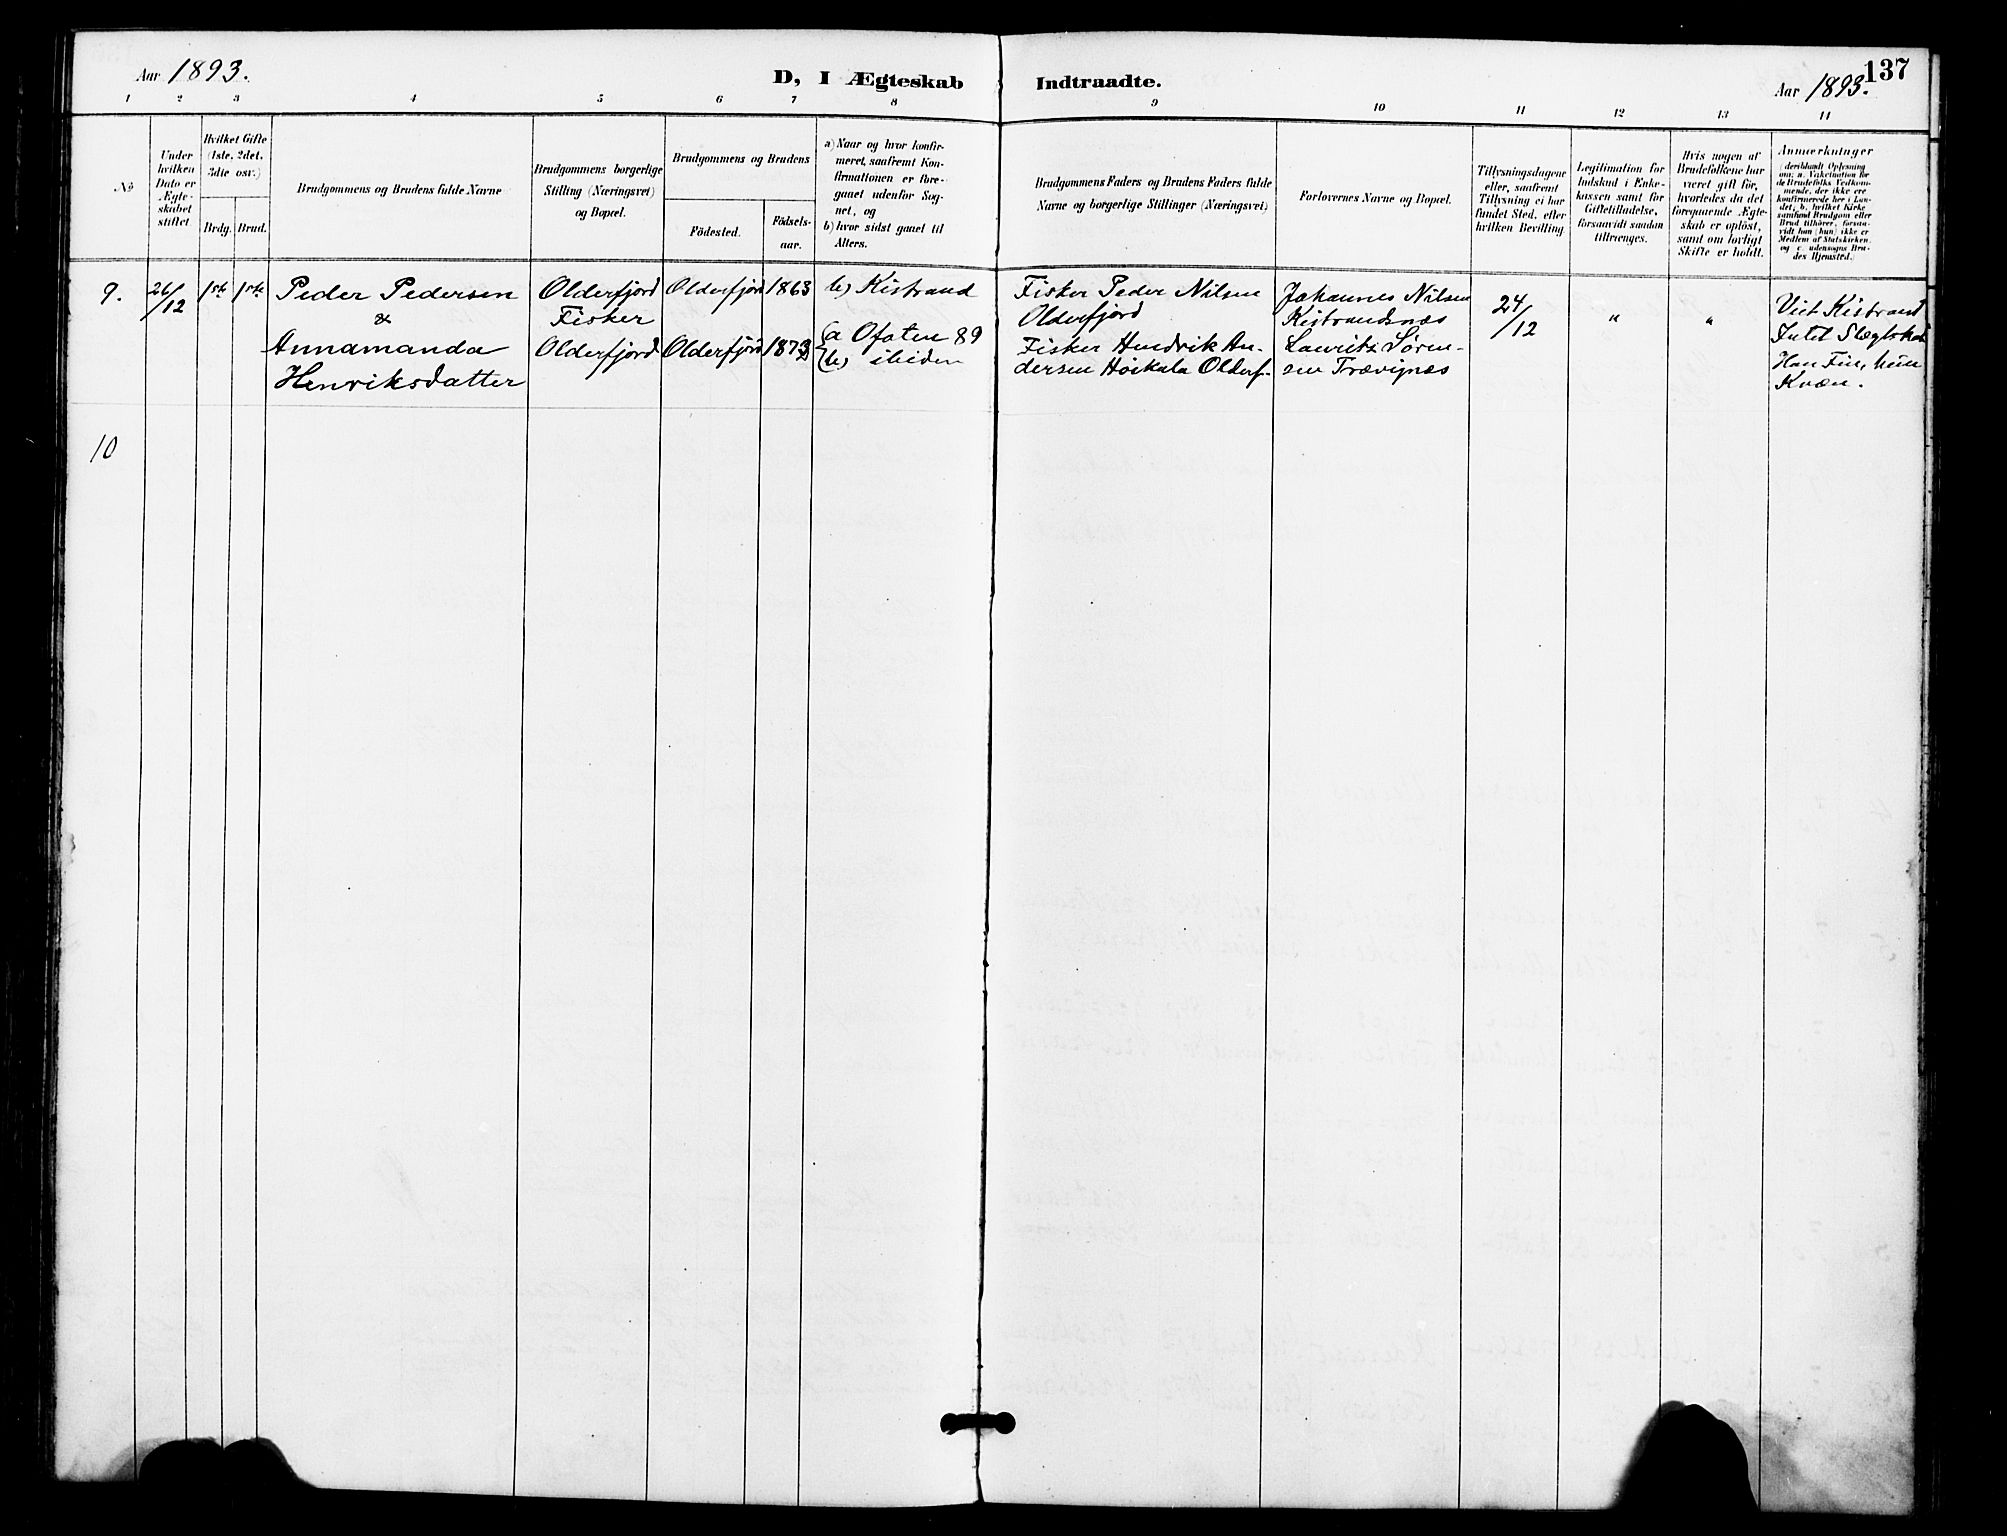 Aar 1893.
D, I Ægteskab
Indtraadte.
Aar 1893.
137
1 2 3 4 5 6 7 8 9 10 11 12 13 14
No
Under
hvilken
Dato er
Ægte-
skabet
stiftet
Hvilket Gifte
(1ste, 2det,
3die osv.)
Brdg.
Brud.
Brudgommens og Brudens fulde Navne
Brudgommens borgerlige
Stilling (Næringsvei)
og Bopæl.
Brudgommens og Brudens
Födested.
Födsels-
aar.
a) Naar og hvor konfir-
meret, saafremt Kon-
firmationen er fore-
gaaet udenfor Sog-
net, og
b) hvor sidst gaaet til
Alters.
Brudgommens Faders og Brudens Faders fulde
Navne og borgerlige Stillinger (Næringsvei)
Forlovernes Navne og Bopæl.
Tillysningsdagene
eller, saafremt
Tillysning ei har
fundet Sted, efter
hvilken Bevilling.
Legitimation for
Indskud i Enke-
kassen samt for
Giftetilladelse,
forsaavidt saadan
tiltrænges.
Hvis nogen af
Brudefolkene har
været gift för,
hvorledes da det
foregaaende Ægte-
skab er oplöst,
samt om lovligt
Skifte er holdt.
Anmærkninger
(deriblandt Oplysning
om: a. Vakcination for
de Brudefolks Vedkom-
mende, der ikke ere
konfirmerede her i Lan-
det, b. hvilket Kirke-
samfund Brudgom eller
Brud tilhörer, forsaa-
vidt han (hun) ikke er
Medlem af Statskirken,
og c. udensogns Bru-
des Hjemsted.)
9.
26/12
1ste
1ste
Peder Pedersen
&
Annamanda
Henriksdatter
Olderfjord
Fisker
Olderfjord
Olderfjord
Olderfjord
1863
1873
b) Kistrand
a Ofoten 89
b) ibiden
Fisker Peder Nilsen
Olderfjord
Fisker Hendrik An-
dersen Höikala Olderf.
Johannes Nilsen
Kistrandsnæs
Lauritz Sören-
sen Trævignæs
24/12
"
"
Viet Kistrand
Intet Slægtskab
Han Fin, hun
Kvæn.
10